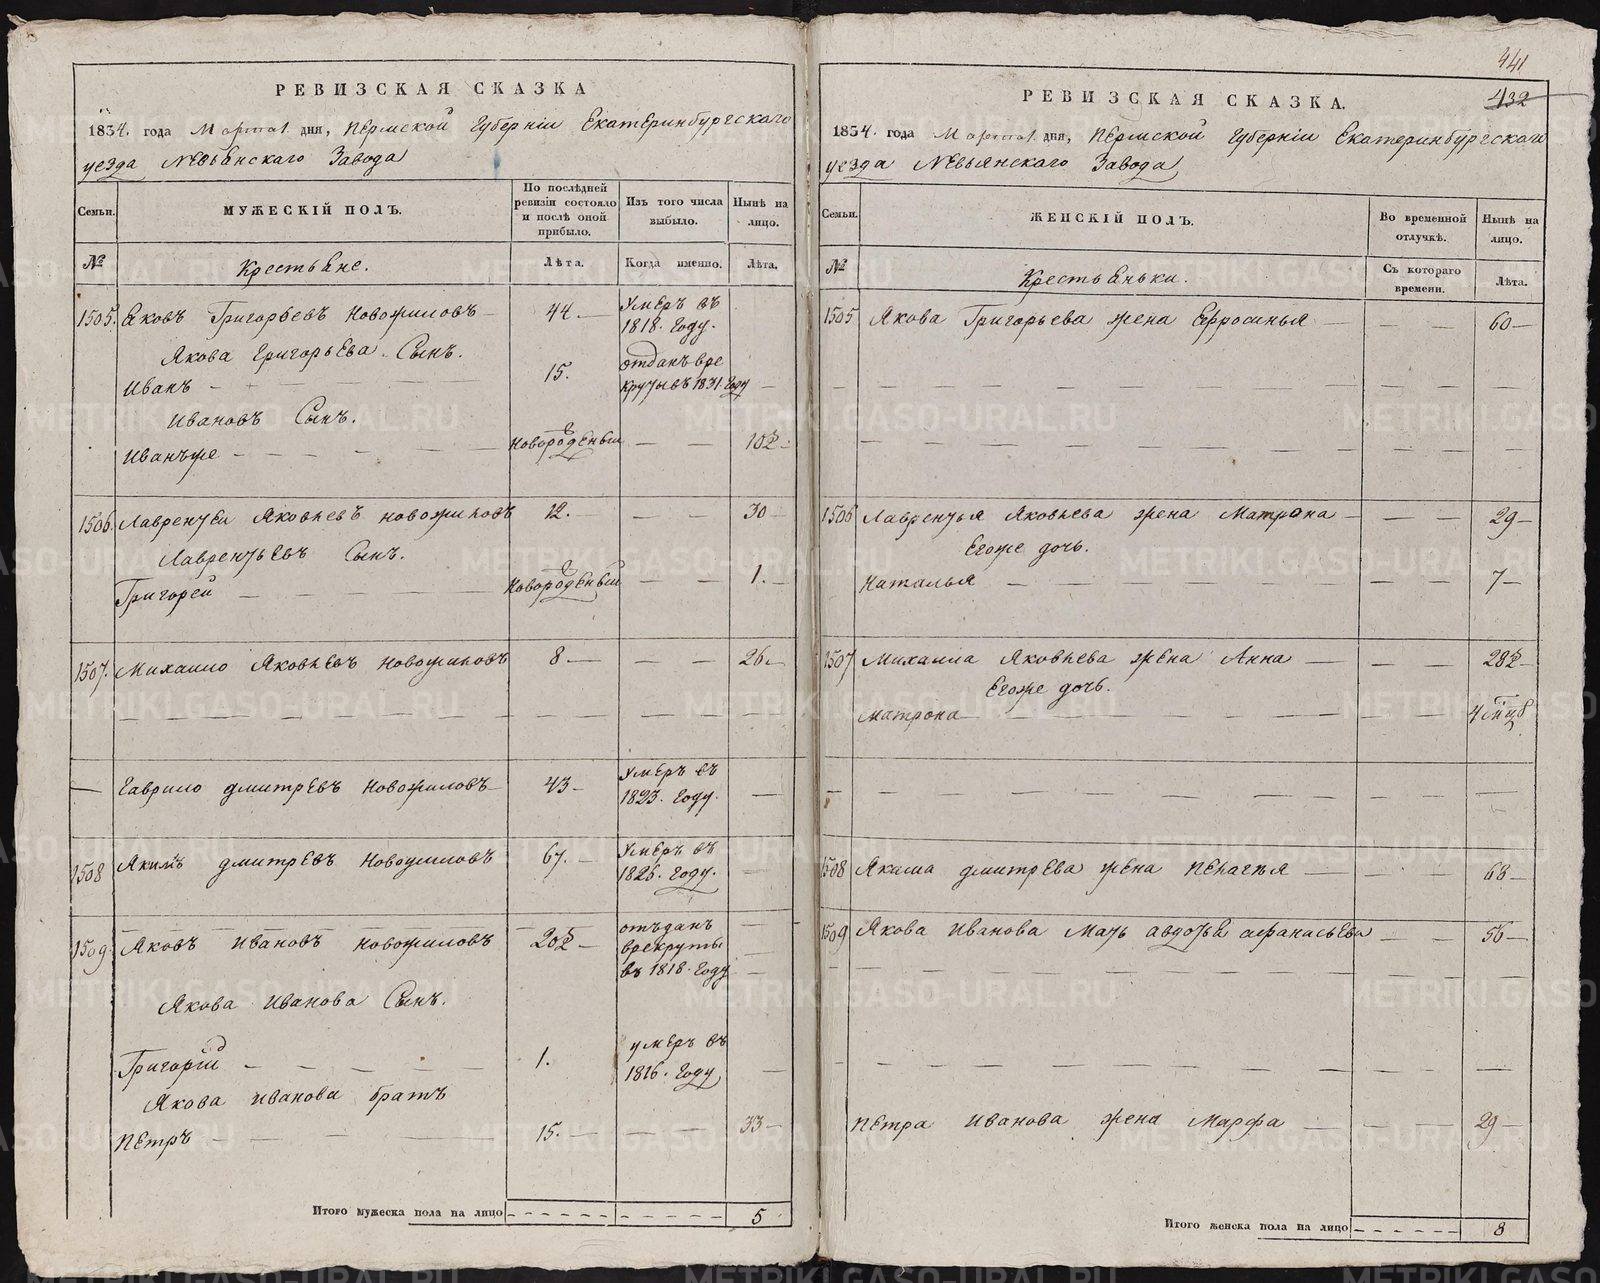 РЕВИЗСКАЯ СКАЗКА
1834. года Марта 1. дня, Пермской Губерніи Екатеринбургскаго
уезда Невьянскаго Завода
Семьи.
МУЖЕСКІЙ ПОЛЪ.
По послѣдней ревизіи состояло и послѣ оной прибыло.
Изъ того числа выбыло.
Нынѣ на лицо.
№
Крестьяне.
Лѣта.
Когда именно.
Лѣта.
1505. Яковъ Григорьевъ Новожиловъ — 44. — Умеръ въ
1818. Году.
Якова Григорьева Сынъ.
Иванъ — 15. отданъ вре
круты въ 1831. Году —
Ивановъ Сынъ.
Иванъже — Новорожденный — 10½ —
1506 Лаврентей Яковлевъ Новожиловъ 12. — 30 —
Лаврентьевъ Сынъ.
Григорей — Новорожденный — 1. —
1507. Михаило Яковлевъ Новожиловъ 8 — 26. —
— Гаврило Дмитревъ Новожиловъ — 43 — Умеръ въ
1823. Году. —
1508 Якимъ Дмитревъ Новожиловъ 67. — Умеръ въ
1826. Году. —
1509. Яковъ Ивановъ Новожиловъ 20½ — отъданъ
врекруты
въ 1818. Году —
Якова Иванова Сынъ.
Григорій — 1. умеръ въ
1816. Году —
Якова Иванова братъ
Петръ — 15. — 33 —
Итого мужеска пола на лицо 5
441
432
РЕВИЗСКАЯ СКАЗКА.
1834. года Марта 1. дня, Пермской Губерніи Екатеринбургскаго
уезда Невьянскаго Завода
Семьи.
ЖЕНСКІЙ ПОЛЪ.
Во временной отлучкѣ.
Нынѣ на лицо.
№
Крестьянки.
Съ котораго времени.
Лѣта.
1505 Якова Григорьева жена Ефросинья — 60 —
1506 Лаврентья Яковлева жена Матрона — 29 —
Егоже дочь.
Наталья — 7 —
1507 Михаила Яковлева жена Анна — 28½ —
Егоже дочь.
Матрона — 4
1508 Якима Дмитрева жена Пелагея — 68 —
1509 Якова Иванова Мать Авдотья Афанасьева — 56 —
Петра Иванова жена Марфа — 29 —
Итого женска пола на лицо 8
METRIKI.GASO-URAL.RU